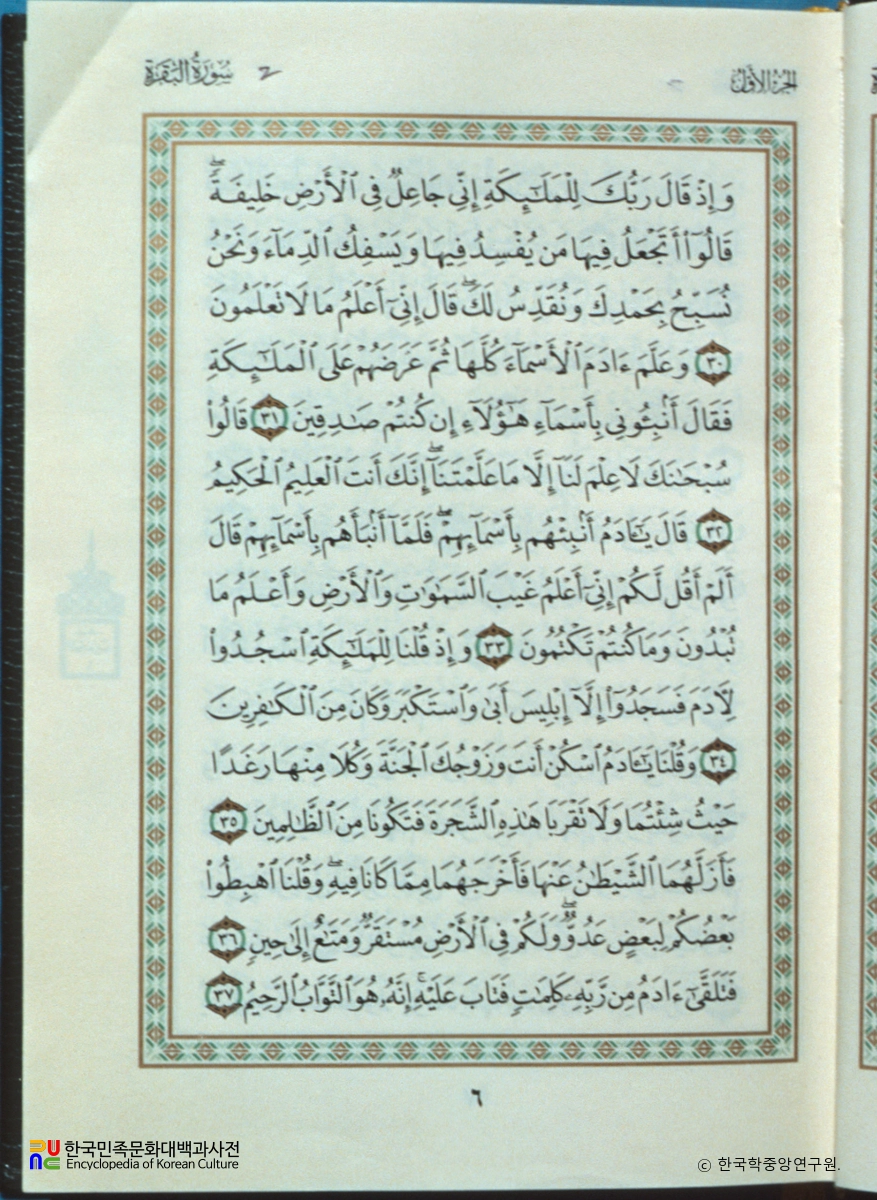 الجزء الأول
2 سورة البقرة
وَإِذْ قَالَ رَبُّكَ لِلْمَلَٰٓئِكَةِ إِنِّى جَاعِلٌ فِى ٱلْأَرْضِ خَلِيفَةً ۖ
قَالُوٓا۟ أَتَجْعَلُ فِيهَا مَن يُفْسِدُ فِيهَا وَيَسْفِكُ ٱلدِّمَآءَ وَنَحْنُ
نُسَبِّحُ بِحَمْدِكَ وَنُقَدِّسُ لَكَ ۖ قَالَ إِنِّىٓ أَعْلَمُ مَا لَا تَعْلَمُونَ
٣٠ وَعَلَّمَ ءَادَمَ ٱلْأَسْمَآءَ كُلَّهَا ثُمَّ عَرَضَهُمْ عَلَى ٱلْمَلَٰٓئِكَةِ
فَقَالَ أَنۢبِـُٔونِى بِأَسْمَآءِ هَٰٓؤُلَآءِ إِن كُنتُمْ صَٰدِقِينَ ٣١ قَالُوا۟
سُبْحَٰنَكَ لَا عِلْمَ لَنَآ إِلَّا مَا عَلَّمْتَنَآ ۖ إِنَّكَ أَنتَ ٱلْعَلِيمُ ٱلْحَكِيمُ
٣٢ قَالَ يَٰٓـَٔادَمُ أَنۢبِئْهُم بِأَسْمَآئِهِمْ ۖ فَلَمَّآ أَنۢبَأَهُم بِأَسْمَآئِهِمْ قَالَ
أَلَمْ أَقُل لَّكُمْ إِنِّىٓ أَعْلَمُ غَيْبَ ٱلسَّمَٰوَٰتِ وَٱلْأَرْضِ وَأَعْلَمُ مَا
تُبْدُونَ وَمَا كُنتُمْ تَكْتُمُونَ ٣٣ وَإِذْ قُلْنَا لِلْمَلَٰٓئِكَةِ ٱسْجُدُوا۟
لِـَٔادَمَ فَسَجَدُوٓا۟ إِلَّآ إِبْلِيسَ أَبَىٰ وَٱسْتَكْبَرَ وَكَانَ مِنَ ٱلْكَٰفِرِينَ
٣٤ وَقُلْنَا يَٰٓـَٔادَمُ ٱسْكُنْ أَنتَ وَزَوْجُكَ ٱلْجَنَّةَ وَكُلَا مِنْهَا رَغَدًا
حَيْثُ شِئْتُمَا وَلَا تَقْرَبَا هَٰذِهِ ٱلشَّجَرَةَ فَتَكُونَا مِنَ ٱلظَّٰلِمِينَ ٣٥
فَأَزَلَّهُمَا ٱلشَّيْطَٰنُ عَنْهَا فَأَخْرَجَهُمَا مِمَّا كَانَا فِيهِ ۖ وَقُلْنَا ٱهْبِطُوا۟
بَعْضُكُمْ لِبَعْضٍ عَدُوٌّ ۖ وَلَكُمْ فِى ٱلْأَرْضِ مُسْتَقَرٌّ وَمَتَٰعٌ إِلَىٰ حِينٍ ٣٦
فَتَلَقَّىٰٓ ءَادَمُ مِن رَّبِّهِۦ كَلِمَٰتٍ فَتَابَ عَلَيْهِ ۚ إِنَّهُۥ هُوَ ٱلتَّوَّابُ ٱلرَّحِيمُ ٣٧
٦
한국민족문화대백과사전
Encyclopedia of Korean Culture
ⓒ 한국학중앙연구원.